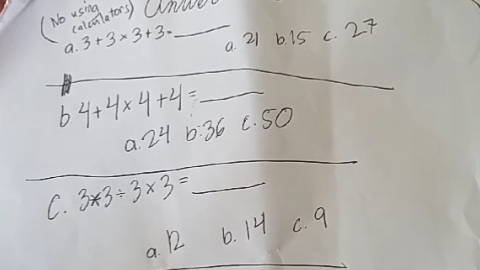 (No using calculators) Answer
a. 3+3×3+3=______
a. 21 b. 15 c. 27
b. 4+4×4+4=______
a. 24 b. 36 c. 50
C. 3*3÷3×3=______
a. 12 b. 14 c. 9